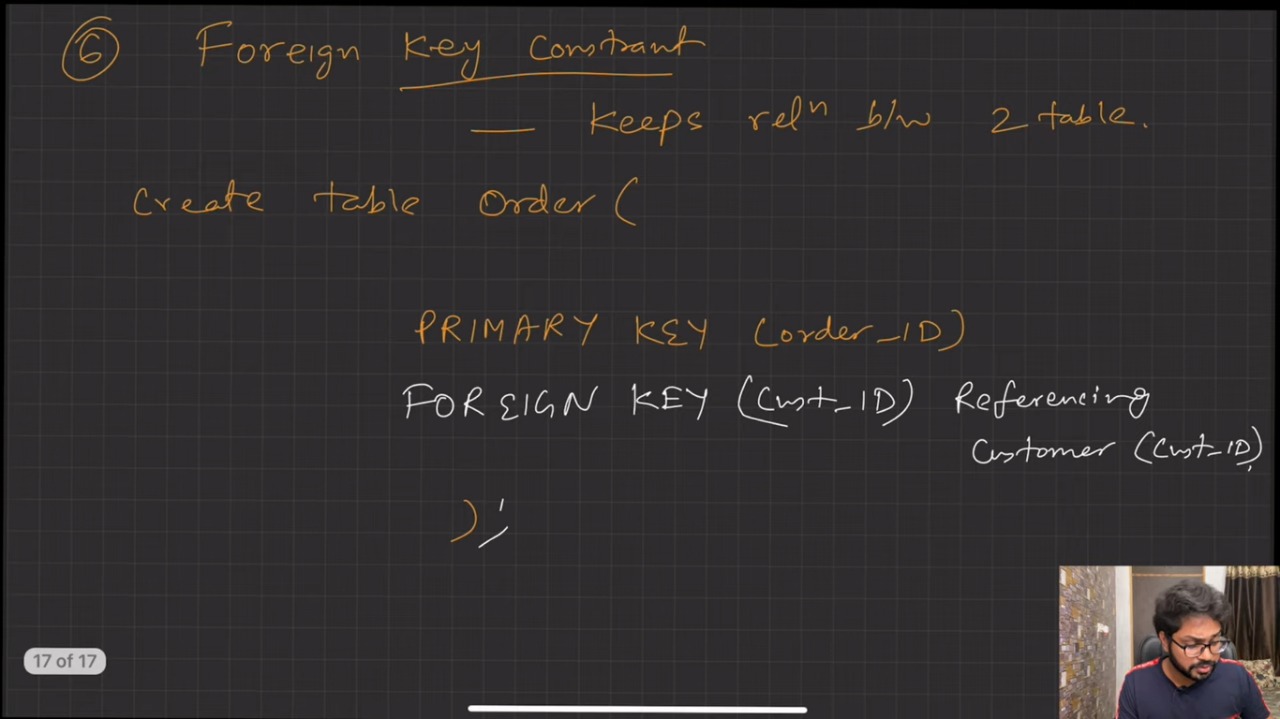 6 Foreign Key Constrant
— Keeps relⁿ b/w 2 table.
Create table Order (
PRIMARY KEY (order_ID)
FOREIGN KEY (Cust_ID) Referencing
Customer (Cust_ID)
);
17 of 17